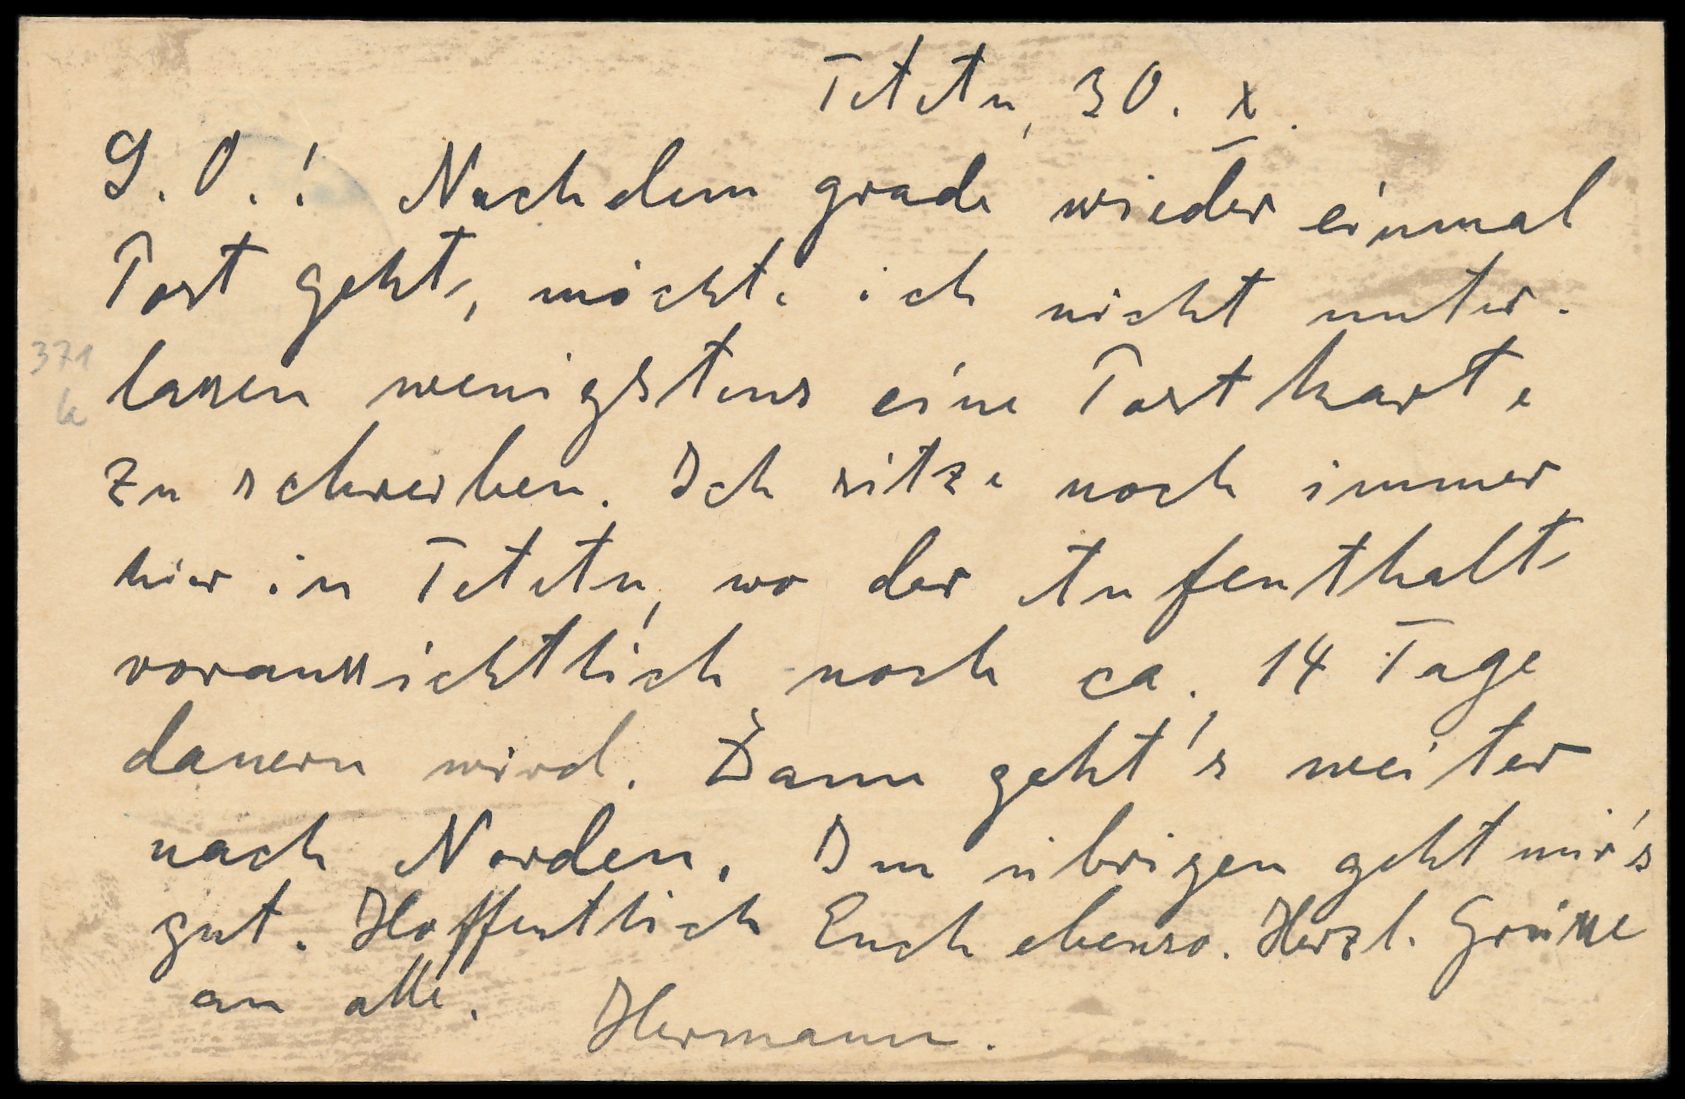 Tetetu, 30. X.
L. O.! Nachdem grade wieder einmal
Post geht, möchte ich nicht unter-
lassen wenigstens eine Postkarte
zu schreiben. Ich sitze noch immer
hier in Tetetu, wo der Aufenthalt
voraussichtlich noch ca. 14 Tage
dauern wird. Dann geht's weiter
nach Norden. Im übrigen geht mir's
gut. Hoffentlich Euch ebenso. Herzl. Grüsse
an alle.
Hermann.
371
k